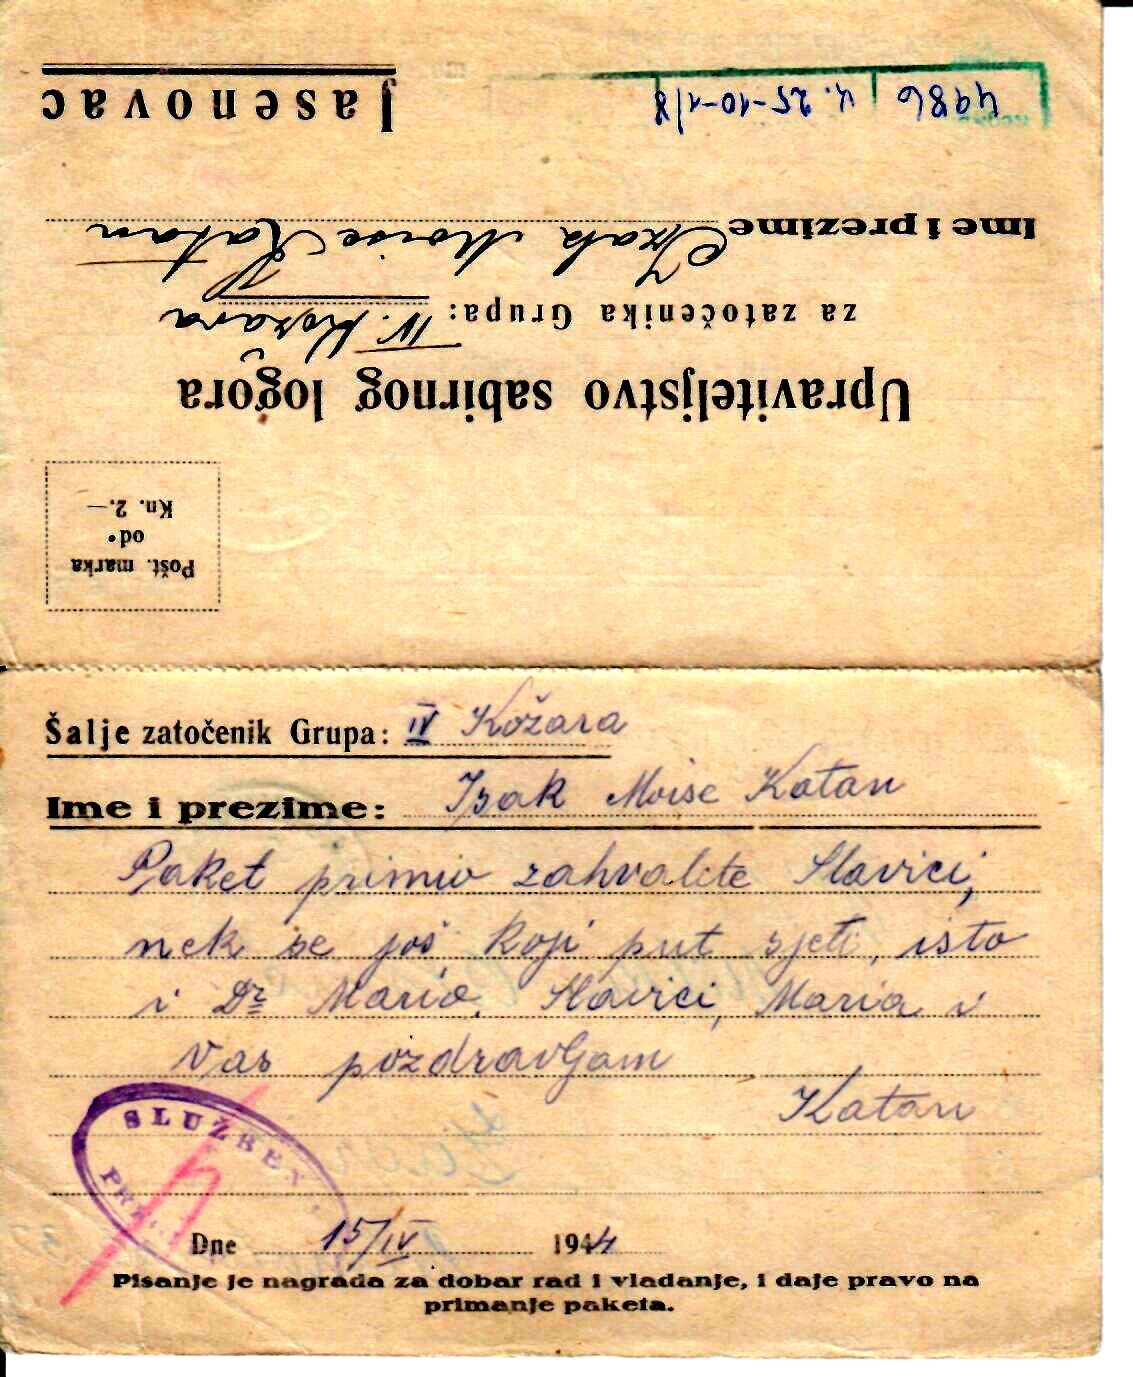 Pošt. marka
od
Kn. 2.—
Upraviteljstvo sabirnog logora
za zatočenika Grupa: IV. Kožara
Ime i prezime Izak Moise Katan
Jasenovac
4986 4. 25-10-1/8
Šalje zatočenik Grupa: IV Kožara
Ime i prezime: Isak Moise Katan
Paket primio zahvalite Slavici,
nek se još koji put sjeti, isto
i Dr Mario. Slavici, Maria i
vas pozdravljam
Katan
SLUŽBENI
Dne 15/IV 1944
Pisanje je nagrada za dobar rad i vladanje, i daje pravo na
primanje paketa.